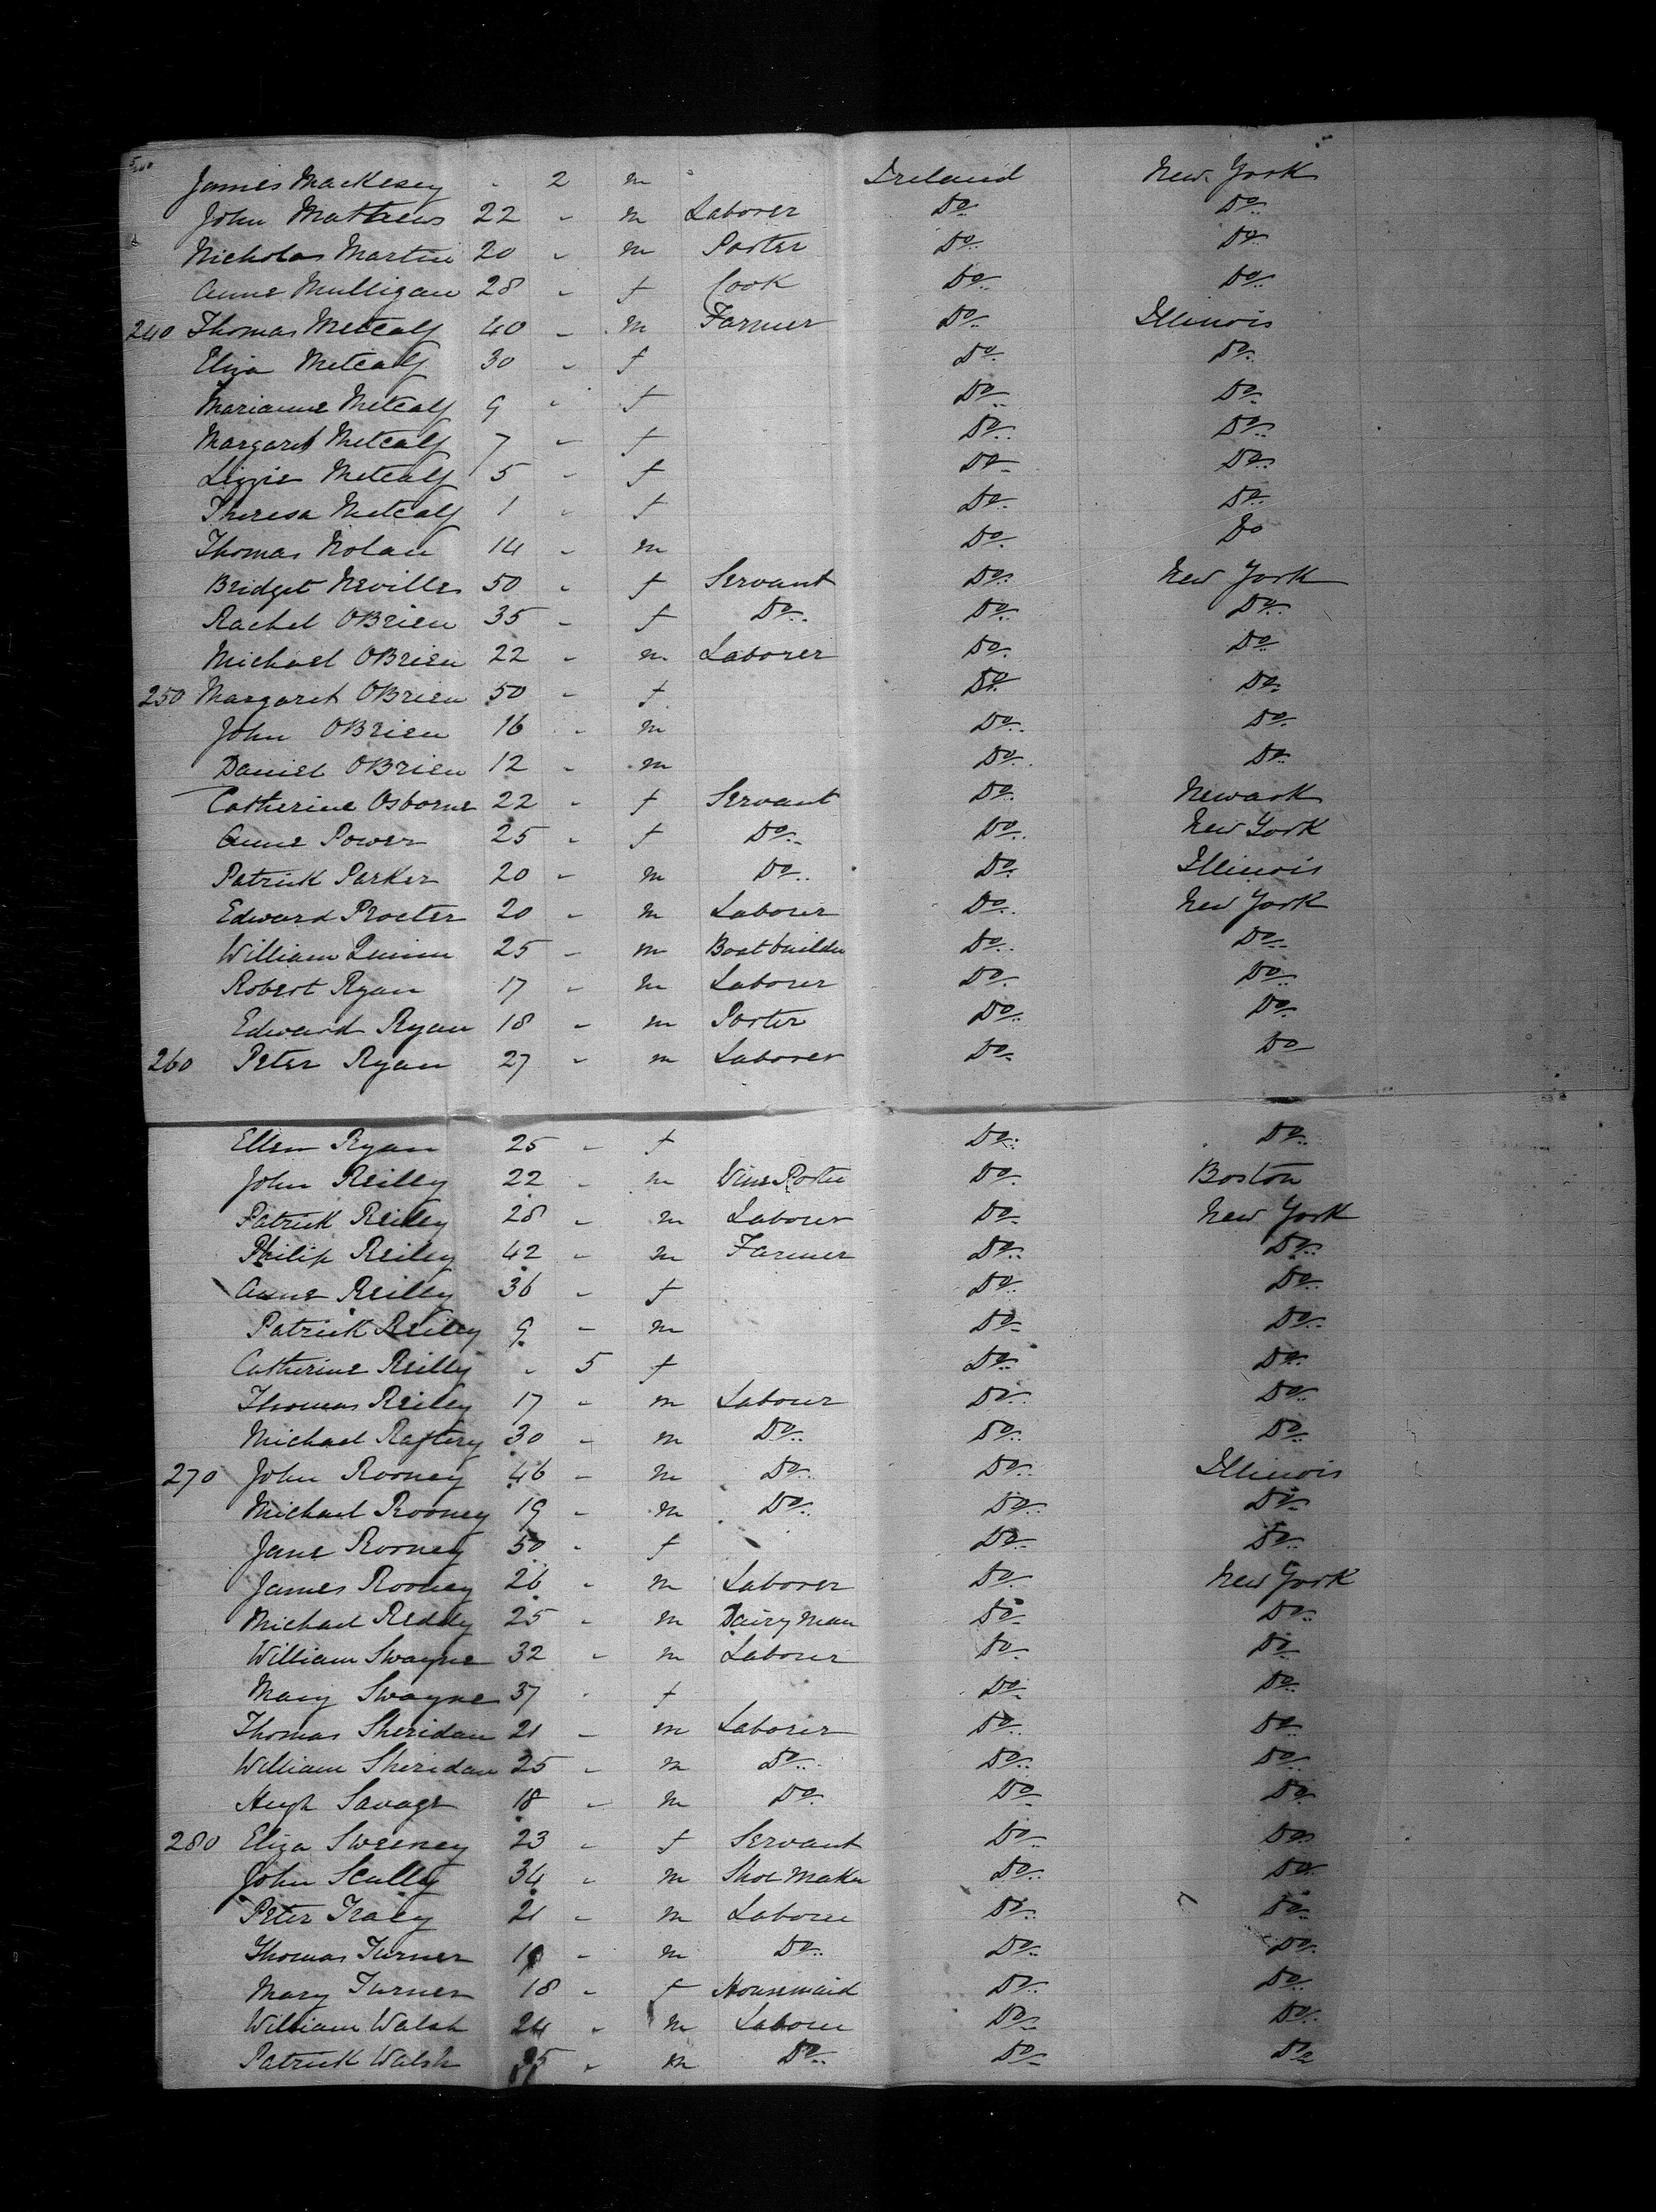 James Mackesey - 2 m Ireland New York
John Mathews 22 - m Laborer Do Do
Nicholas Martin 20 - m Porter Do Do
Anne Mulligan 28 - f Cook Do Do
240 Thomas Metcalf 40 - m Farmer Do Illinois
Eliza Metcalf 30 - f Do Do
Marianne Metcalf 9 - f Do Do
Margaret Metcalf 7 - f Do Do
Lizzie Metcalf 5 - f Do Do
Theresa Metcalf 1 - f Do Do
Thomas Nolan 14 - m Do Do
Bridget Neville 50 - f Servant Do New York
Rachel OBrien 35 - f Do Do Do
Michael OBrien 22 - m Laborer Do Do
250 Margaret OBrien 50 - f Do Do
John OBrien 16 - m Do Do
Daniel OBrien 12 - m Do Do
Catherine Osborne 22 - f Servant Do Newark
Anne Power 25 - f Do Do New York
Patrick Parker 20 - m Do Do Illinois
Edward Procter 20 - m Laborer Do New York
William Quinn 25 - m Boatbuilder Do Do
Robert Ryan 17 - m Laborer Do Do
Edward Ryan 18 - m Porter Do Do
260 Peter Ryan 27 - m Laborer Do Do
Ellen Ryan 25 - f Do Do
John Reilly 22 - m Wine Porter Do Boston
Patrick Reilly 28 - m Laborer Do New York
Philip Reilly 42 - m Farmer Do Do
Anne Reilly 36 - f Do Do
Patrick Reilly 9 - m Do Do
Catherine Reilly - 5 f Do Do
Thomas Reilly 17 - m Laborer Do Do
Michael Raftery 30 - m Do Do Do
270 John Rooney 46 - m Do Do Illinois
Michael Rooney 19 - m Do Do Do
Jane Rooney 50 - f Do Do
James Rooney 26 - m Laborer Do New York
Michael Reddy 25 - m Dairy Man Do Do
William Swayne 32 - m Laborer Do Do
Mary Swayne 37 - f Do Do
Thomas Sheridan 21 - m Laborer Do Do
William Sheridan 25 - m Do Do Do
Hugh Savage 18 - m Do Do Do
280 Eliza Sweeney 23 - f Servant Do Do
John Scully 34 - m Shoe Maker Do Do
Peter Tracy 21 - m Laborer Do Do
Thomas Turner - m Do Do Do
Mary Turner 18 - f Housemaid Do Do
William Walsh 24 - m Laborer Do Do
Patrick Walsh - m Do Do Do